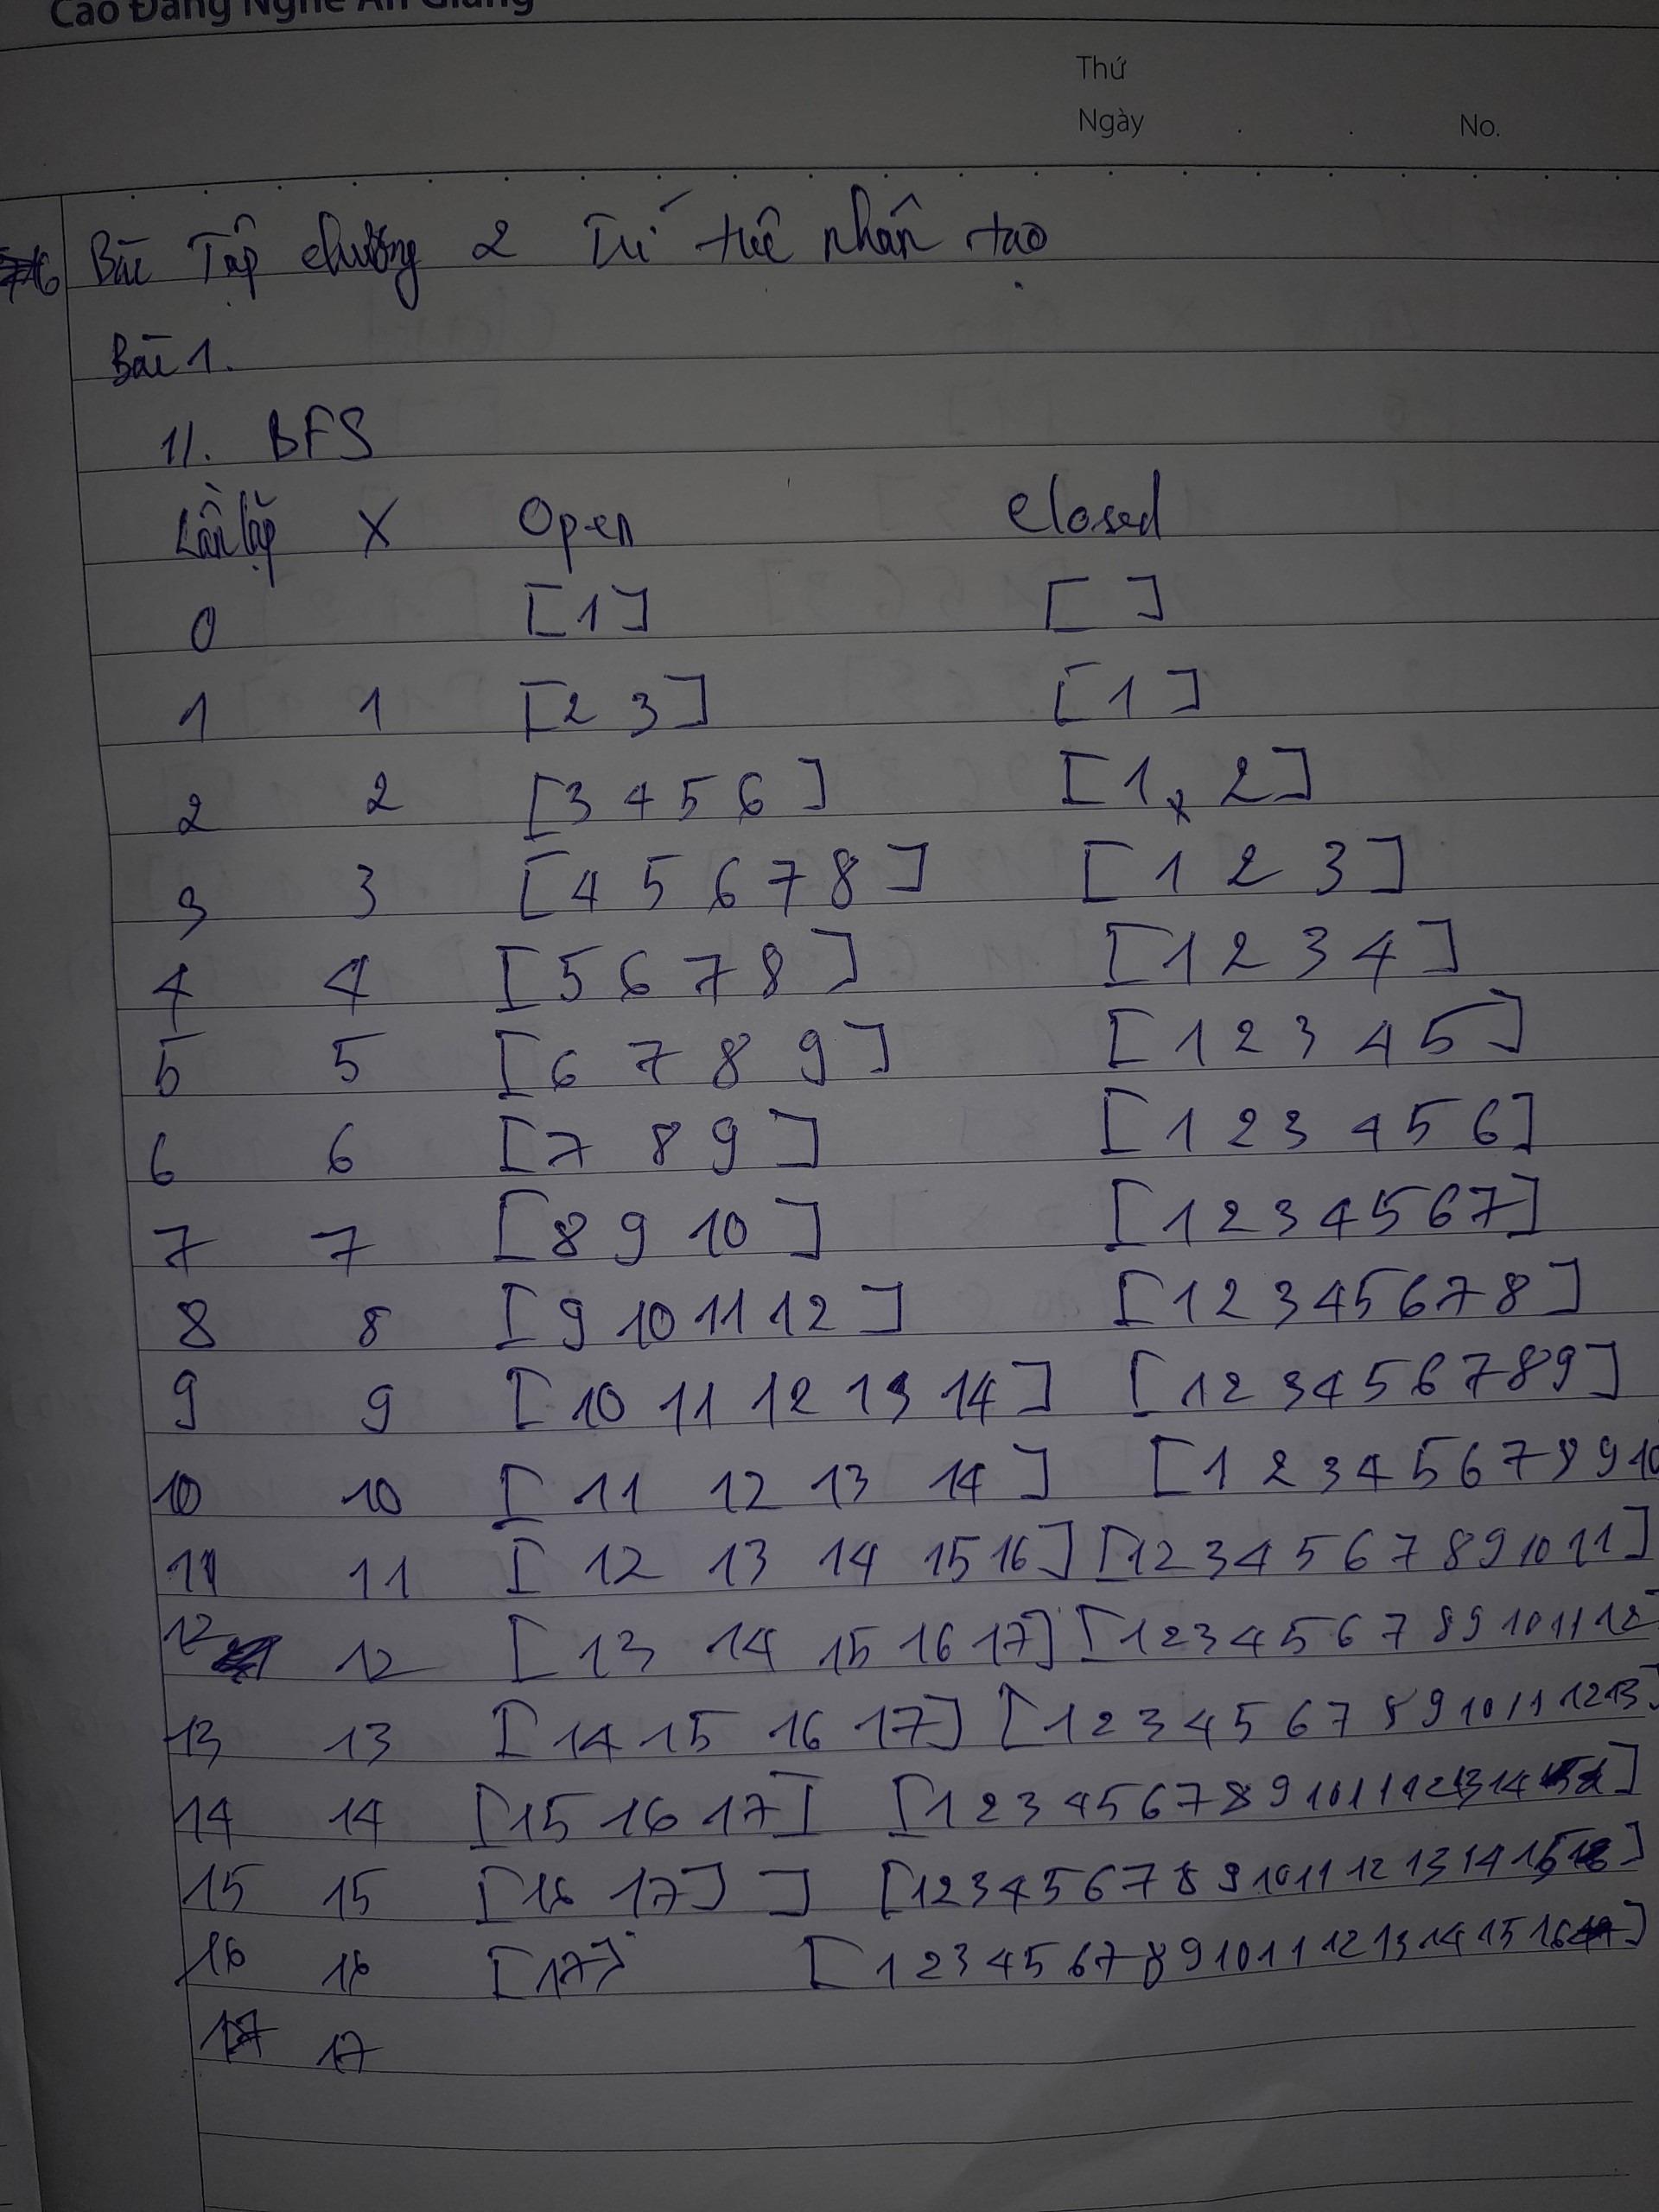 Cao Đẳng Nghề An Giang
Thứ
Ngày . . No.
Bài Tập chương 2 Trí tuệ nhân tạo
Bài 1.
1/. BFS
Lần lặp X Open Closed
0 [1] [ ]
1 1 [2 3] [1]
2 2 [3 4 5 6] [1, 2]
3 3 [4 5 6 7 8] [1 2 3]
4 4 [5 6 7 8] [1 2 3 4]
5 5 [6 7 8 9] [1 2 3 4 5]
6 6 [7 8 9] [1 2 3 4 5 6]
7 7 [8 9 10] [1 2 3 4 5 6 7]
8 8 [9 10 11 12] [1 2 3 4 5 6 7 8]
9 9 [10 11 12 13 14] [1 2 3 4 5 6 7 8 9]
10 10 [11 12 13 14] [1 2 3 4 5 6 7 8 9 10
11 11 [12 13 14 15 16] [1 2 3 4 5 6 7 8 9 10 11]
12 12 [13 14 15 16 17] [1 2 3 4 5 6 7 8 9 10 11 12]
13 13 [14 15 16 17] [1 2 3 4 5 6 7 8 9 10 11 12 13]
14 14 [15 16 17] [1 2 3 4 5 6 7 8 9 10 11 12 13 14]
15 15 [16 17] ] [1 2 3 4 5 6 7 8 9 10 11 12 13 14 15]
16 16 [17] [1 2 3 4 5 6 7 8 9 10 11 12 13 14 15 16]
17 17